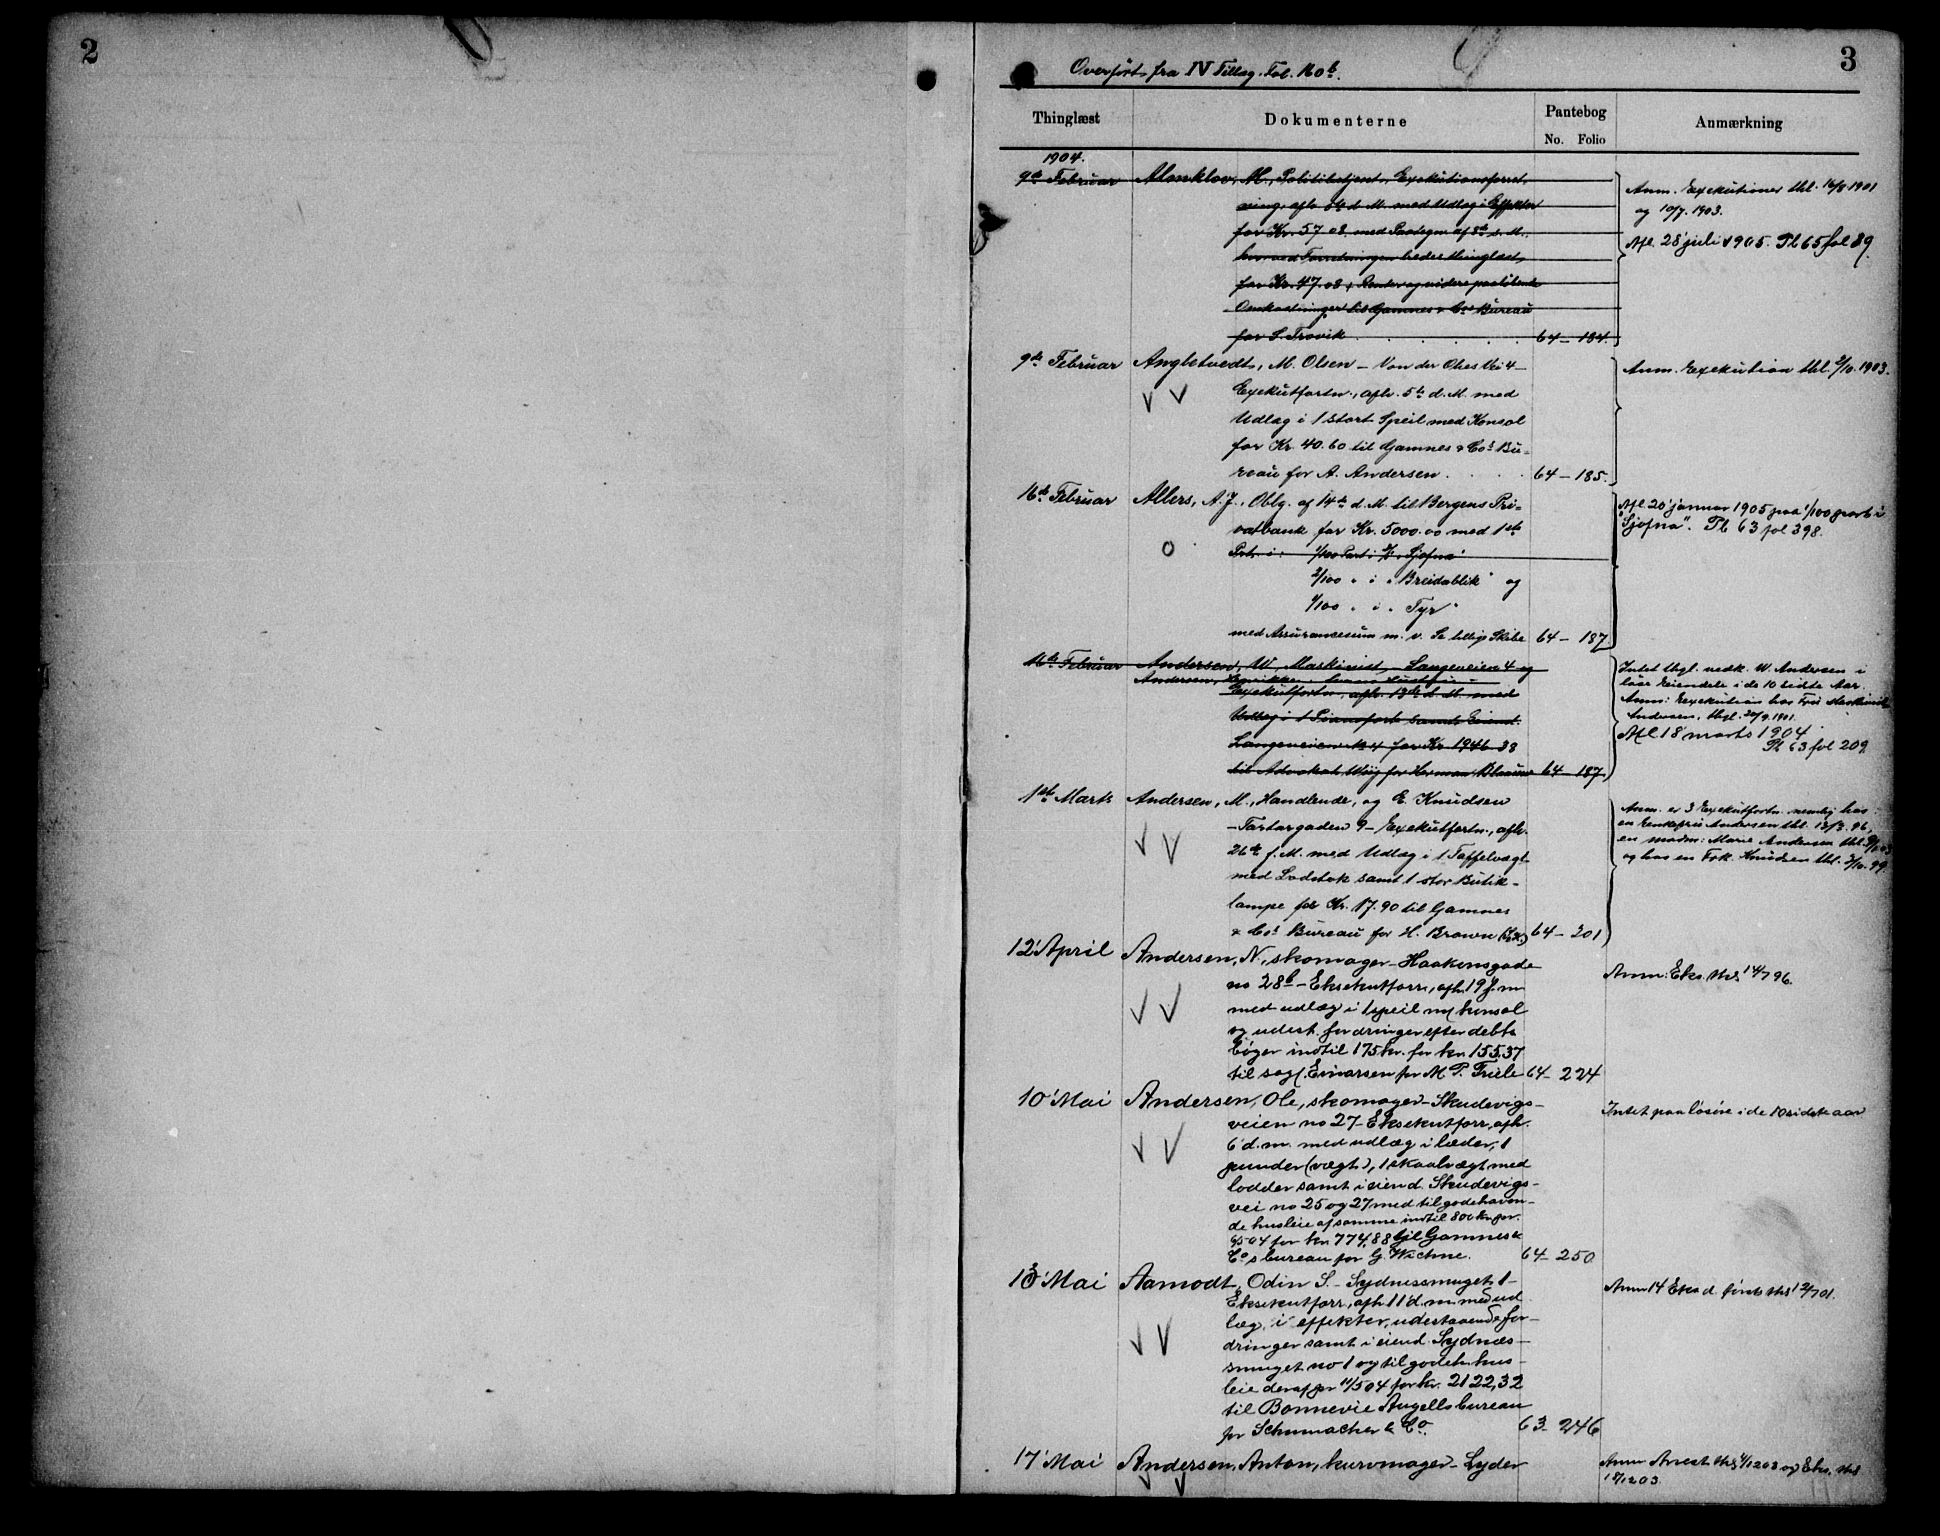 2
3
Overført fra IV Tillæg. Fol. 160b.
Thinglæst
Dokumenterne
Pantebog
No. Folio
Anmærkning
1904.
9de Februar Almklov, M., Politibetjent, Exekutionsforret-
ning, afh. 5te d. M. med Udlæg i Effekter
for Kr. 57.08. med Paategn. af 8de d. M.
hvorved Forretningen bedes thinglæst
for Kr. 47.08 + Renter og videre paaløbende
Omkostninger til Gamnes & Cos Bureau
for S. Trovik 64 - 184
Anm. Exekutioner thl. 16/8 1901
og 10/7. 1903.
Afl. 28 juli 1905. Pb 65 fol 89.
9de Februar Angletvedt, M. Olsen - Von der Ohes Vei 4 -
Exekutfortn., afh. 5te d. M. med
Udlæg i 1 stort Speil med Konsol
for Kr. 40.60 til Gamnes & Cos Bu-
reau for A. Andersen 64 - 185.
Anm. Exekution thl. 2/10. 1903.
16de Februar Allers, A. J., Oblg. af 14de d. M. til Bergens Pri-
vatbank for Kr. 5000.00 med 1ste
Prt. i: 1/100 Part i S/S "Sjofna"
2/100 " i " Breidablik" og
1/100 " i " Tyr"
med Assurancesum m. v. Se tillige Skibe 64 - 187
Afl 20 januar 1905 paa 1/100 part i
"Sjofna". Pb 63 fol 398.
16de Februar Andersen, W., Maskinist, - Langeveien 4 og
Andersen, Henrikke, hans Hustru -
Exekutfortn., afh. 13de d. M. med
Udlæg i 1 Pianoforte samt Eiend.
Langeveien No 4 for Kr. 1946.38
til Advokat Wiig for Herman Blaauw 64 - 187
Intet thgl. vedk. W. Andersen i
løse Eiendele i de 10 sidste Aar
Anm: Exekution hos Fru Maskinist
Andersen, thgl. 20/9. 1901.
Afl 18 marts 1904
Pb 63 fol 209
1ste Marts Andersen, M., Handlende, og E. Knudsen
- Tartargaden 9 - Exekutfortn., afh.
26de f. M. med Udlæg i 1 Taffelvægt
med Lodstok samt 1 stor Butik-
lampe for Kr. 17.90 til Gamnes
& Cos Bureau for H. Brown 64 - 201
Anm. er 3 Exekutfortn. nemlig hos:
en Enkefru Andersen thl. 13/3. 96,
en madm: Marie Andersen thl.
og hos en Frk. Knudsen thl. 3/10. 99.
12 April Andersen, N., skomager - Haakonsgade
no 28b - Eksekutforr., afh. 19 f. m
med udlæg i 1 speil m/ konsol
og udest. fordringer efter debt.
bøger indtil 175 kr. for kr. 155,37
til sagf. Einarsen for M. P. Friele 64 - 224
Anm: Eks. thl 14/7 96.
10 Mai Andersen, Ole, skomager - Skudevigs-
veien no 27 - Eksekutforr., afh.
6 d. m. med udlæg i læder, 1
punder (vægt), 1 skaalvægt med
lodder samt i eiend. Skudevigs-
vei no 25 og 27 med tilgodehaven-
de husleie af samme indtil 800 kr. pr.
6/5 04 for kr. 774,88 til Gamnes &
Co's bureau for G. Wichne. 64 - 250
Intet paa løsøre i de 10 sidste aar
13 Mai Aamodt, Odin S. - Sydnessmuget 1 -
Eksekutforr., afh. 11 d. m. med ud
læg i effekter, udestaaende for-
dringer samt i eiend. Sydnæs-
smuget no 1 og tilgodeh. hus-
leie deraf pr 11/5 04 for kr. 2122,32
til Bonnevie Angells bureau
for Schumacher & Co. 63 - 246
Anm 14 Eks d. første thl 12/7 01.
17 Mai Andersen, Anton, kurvmager - Lyder
Anm Arrest thl 4/12 03 og Eks. thl
18/12 03.